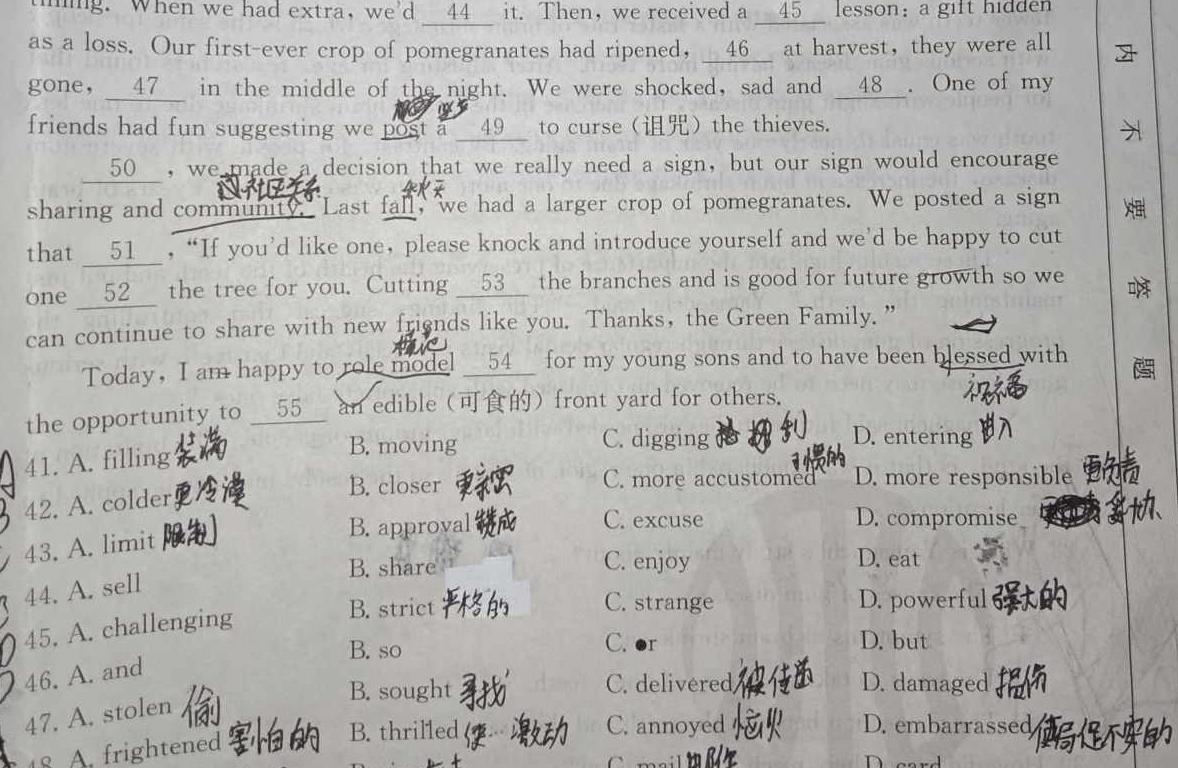 timing. When we had extra, we'd 44 it. Then, we received a 45 lesson: a gift hidden
as a loss. Our first-ever crop of pomegranates had ripened, 46 at harvest, they were all
gone, 47 in the middle of the night. We were shocked, sad and 48 . One of my
friends had fun suggesting we post a 49 to curse (诅咒) the thieves.
50 , we made a decision that we really need a sign, but our sign would encourage
社区关系 秋天
sharing and community. Last fall, we had a larger crop of pomegranates. We posted a sign
that 51 , “If you'd like one, please knock and introduce yourself and we'd be happy to cut
one 52 the tree for you. Cutting 53 the branches and is good for future growth so we
can continue to share with new friends like you. Thanks, the Green Family.”
Today, I am happy to role model 54 for my young sons and to have been blessed with
祝福
the opportunity to 55 an edible (可食的) front yard for others.
41. A. filling 装满 B. moving C. digging 刨 D. entering 进入
42. A. colder 更冷漠 B. closer 更亲密 C. more accustomed 习惯的 D. more responsible 更负责
43. A. limit 限制 B. approval 赞成 C. excuse D. compromise 妥协
44. A. sell B. share C. enjoy D. eat
45. A. challenging B. strict 严格的 C. strange D. powerful 强大的
46. A. and B. so C. or D. but
47. A. stolen 偷 B. sought 寻找 C. delivered 被传递 D. damaged 损伤
48 A. frightened 害怕的 B. thrilled 使…激动 C. annoyed 恼火 D. embarrassed 使局促不安的
C. mail 邮件 D. card
内
不
要
答
题